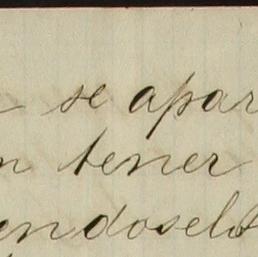 se apar
n tener
endoselo